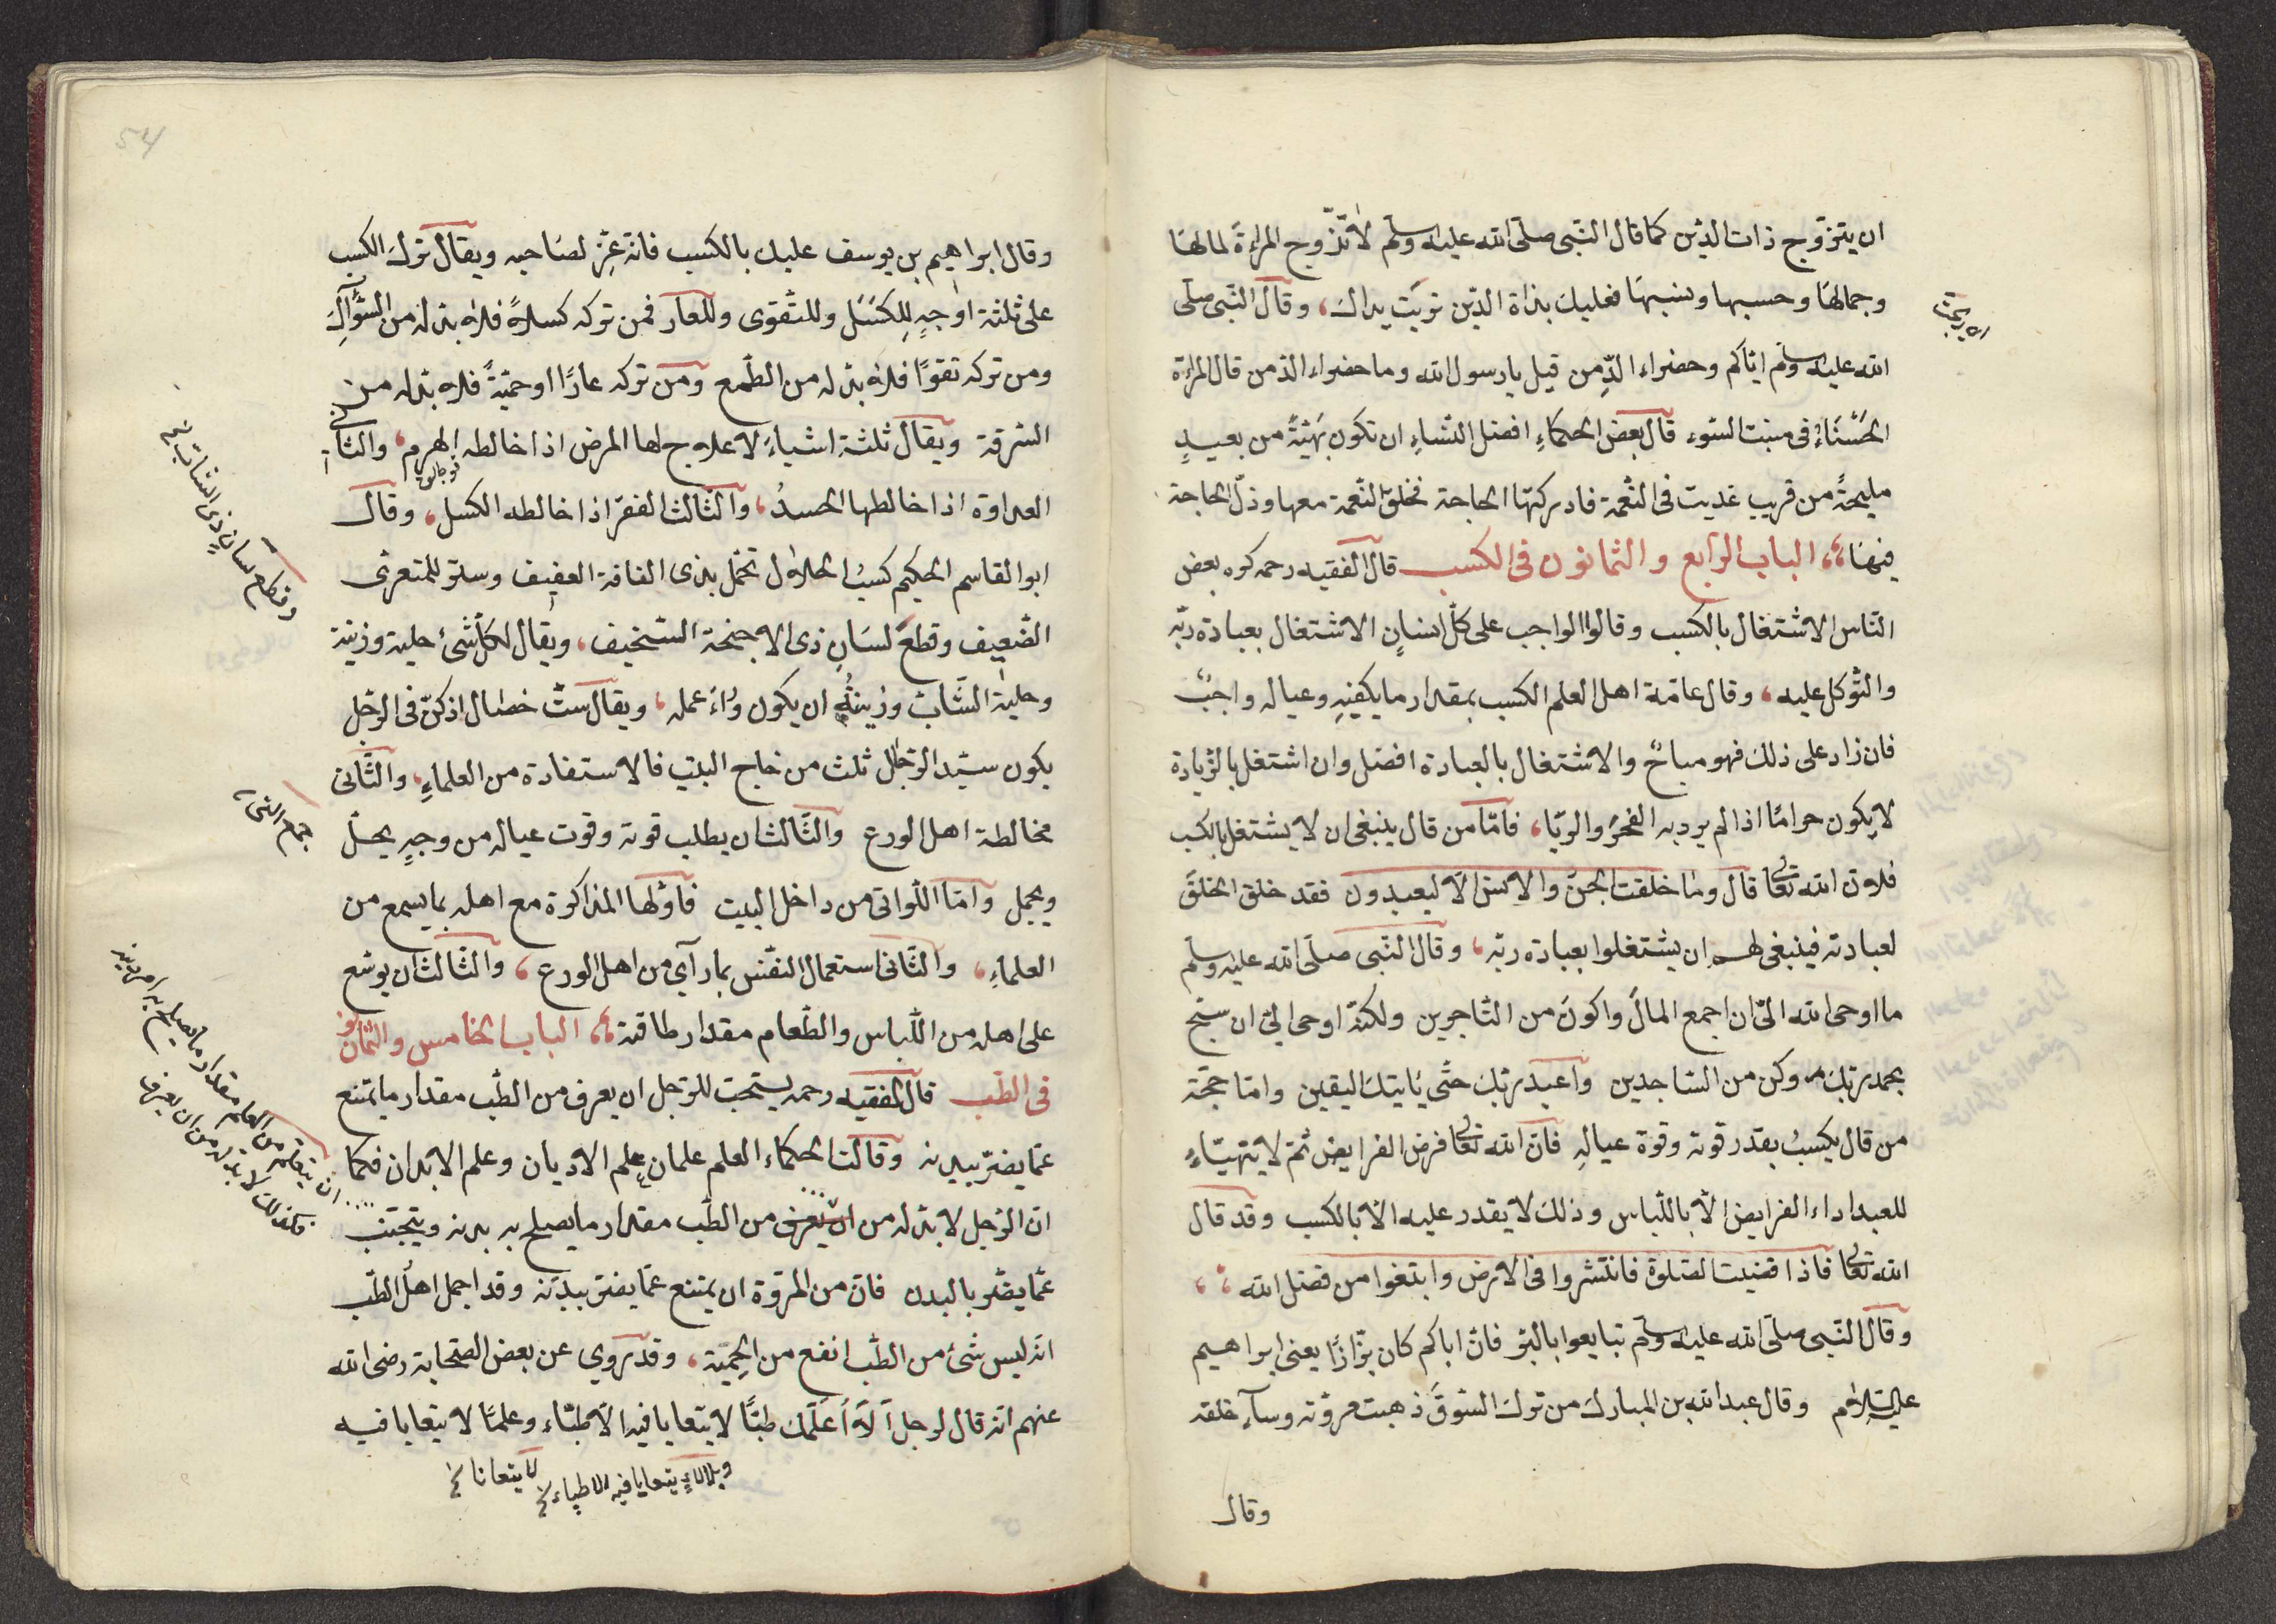 ان يتزوّج ذات الدّين كما قال النّبى صلّى الله عليه وسلّم لا تزّوج المراءة لمالها
وجمالها وحسبها ونسبها فعليك بذاة الدّين تربت يداك، وقال النّبى صلّى
الله عليه وسلّم ايّاكم وحضراء الدّمن قيل يا رسول الله وما حضراء الدّمن قال المراءة
الحسناء فى منبت السّوء قال بعض الحكماء افضل النّساء ان تكون بهيّة من بعيد
مليحة من قريب غديت فى النّعمة فادركتها الحاجة فخلق النّعمة معها وذلّ الحاجة
فيها،، الباب الرّابع والثمانون فى الكسب قال الفقيه رحمه كره بعض
النّاس الاشتغال بالكسب وقالوا الواجب على كلّ انسانٍ الاشتغال بعبادة ربّه
والتّوكل عليه، وقال عامّة اهل العلم الكسب بمقدار ما يكفيه وعياله واجبٌ
فان زاد على ذلك فهو مباحٌ والاشتغال بالعبادة افضل وان اشتغل بالزّيادة
لا يكون حرامًا اذا لم يرد به الفخر والريّا، فامّا من قال ينبغى ان لا يشتغل بالكسب
فلانّ الله تعا قال وما خلقت الجنّ والانس الّا ليعبدون فقد خلق الخلق
لعبادته فينبغى لهم ان يشتغلوا بعبادة ربّه، وقال النّبى صلّى الله عليه وسلّم
ما اوحى الله الىّ ان اجمع المال واكون من التّاجرين ولكنّه اوحى الىّ ان سبّح
بحمد ربّك وكن من السّاجدين واعبد ربّك حتّى يأتيك اليقين وامّا حجّة
من قال يكسب بقدر قوته وقوة عياله فانّ الله تعا فرض الفرايض ثمّ لا يتهيّاء
للعبد اداء الفرايض الّا باللّباس وذلك لا يقدر عليه الّا بالكسب وقد قال
الله تعا فاذا قضيت الصّلوة فانتشروا فى الارض وابتغوا من فضل الله ،،
وقال النّبى صلّى الله عليه وسلّم تبايعوا بالبزّ فانّ اباكم كان بزّازًا يعنى ابراهيم
عليه السّلام وقال عبد الله بن المبارك من ترك السّوق ذهبت مروّته وسآء خلقه
وقال
وقال ابراهيم بن يوسف عليك بالكسب فانّه عزّ لصاحبه ويقال ترك الكسب
على ثلثة اوجهٍ للكسل وللتّقوى وللعار فمن تركه كسلاً فلا بدّ له من السّؤال
ومن تركه تقوًا فلا بدّ له من الطّمع ومن تركه عارًا او حميّةً فلا بدّ له من
السّرقة ويقال ثلثة اشياء لا علاج لها المرض اذا خالطه الهرم، والثّانى
العداوة اذا خالطها الحسد، والثّالث الفقر اذا خالطه الكسل، وقال
ابو القاسم الحكيم كسب الحلال تجمّل بذى الفاقة العفيف وستر للمتعرّى
الضّعيف وقطع لسان ذى الاجنحة السّخيف، ويقال لكلّ شئ حلية وزينة
وحلية الشّابّ وزينته ان يكون وراء عمله، ويقال ستّ خصال اذ كنّ فى الرّجل
يكون سيّد الرّجال ثلث من خاج البيت فالاستفادة من العلماء، والثّانى
مخالطة اهل الورع والثّالث ان يطلب قوته وقوت عياله من وجهٍ يحسل
ويجمل وامّا اللّواتى من داخل البيت فاوّلها المذاكرة مع اهله بما يسمع من
العلماء، والثّانى استعمال النفس بما رآى من اهل الورع، والثّالث ان يوسّع
على اهله من اللّباس والطّعام مقدار طاقته،، الباب الخامس والثّمانون
فى الطّب قال الفقيه رحمه يستحبّ للرّجل ان يعرف من الطّب مقدار ما يمتنع
عمّا يضرّ ببدنه وقالت الحكماء العلم علمان علم الاديان وعلم الابدان فكما
انّ الرّجل لا بدّ له من ان يعرف من الطّب مقدار ما يصلح به بدنه ويتجنّب
عمّا يضرّ بالبدن فانّ من المروّة ان يمتنع عمّا يضرّ ببدنه وقد اجمل اهل الطّب
انّه ليس شئ من الطّب انفع من الحميّة، وقد روي عن بعض الصّحابة رضى الله
عنهم انّه قال لرجل الا اعلّمك طبًّا لا يتعايا فيه الاطبّاء وعلمًا لا يتعايا فيه
يتعايا فيه الاطباء
وقطع لسان ذى
ان يتعلم من العلم مقدار ما يصلح به امر دينه
فكذلك لا بدّ له من ان يعرف
54